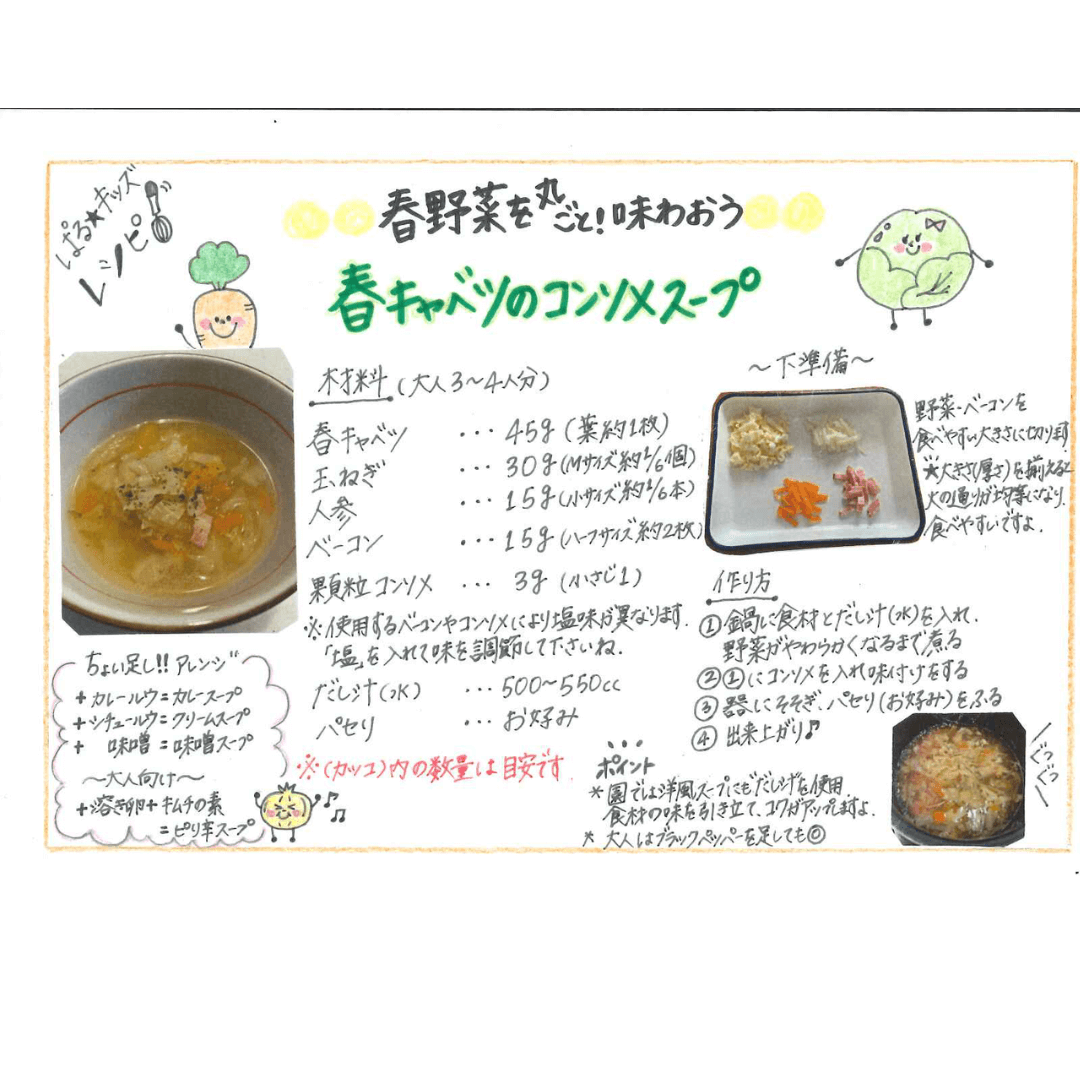 ぱる★キッズ
レシピ
春野菜を丸ごと!味わおう
春キャベツのコンソメスープ
材料(大人3~4人分)
春キャベツ … 45g(葉約1枚)
玉ねぎ … 30g(Mサイズ約1/6個)
人参 … 15g(小サイズ約1/6本)
ベーコン … 15g(ハーフサイズ約2枚)
顆粒コンソメ … 3g(小さじ1)
※使用するベーコンやコンソメにより塩味が異なります.
「塩」を入れて味を調節して下さいね.
だし汁(水) … 500~550cc
パセリ … お好み
※(カッコ)内の数量は目安です.
ちょい足し!!アレンジ
+カレールウ=カレースープ
+シチュールウ=クリームスープ
+ 味噌=味噌スープ
~大人向け~
+溶き卵+キムチの素
=ピリ辛スープ
~下準備~
野菜・ベーコンを
食べやすい大きさに切ります
★大きさ(厚さ)を揃えると
火の通りが均等になり、
食べやすいですよ.
作り方
①鍋に食材とだし汁(水)を入れ、
野菜がやわらかくなるまで煮る
②①にコンソメを入れ味付けをする
③器にそそぎ、パセリ(お好み)をふる
④出来上がり♪
ぐつぐつ
ポイント
*園では洋風スープにも"だし汁"を使用.
食材の味を引き立て、コクがアップしますよ.
*大人はブラックペッパーを足しても◎